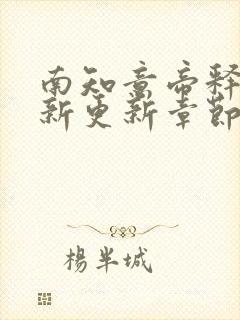 南知意帝释
新更新章节
楊半城